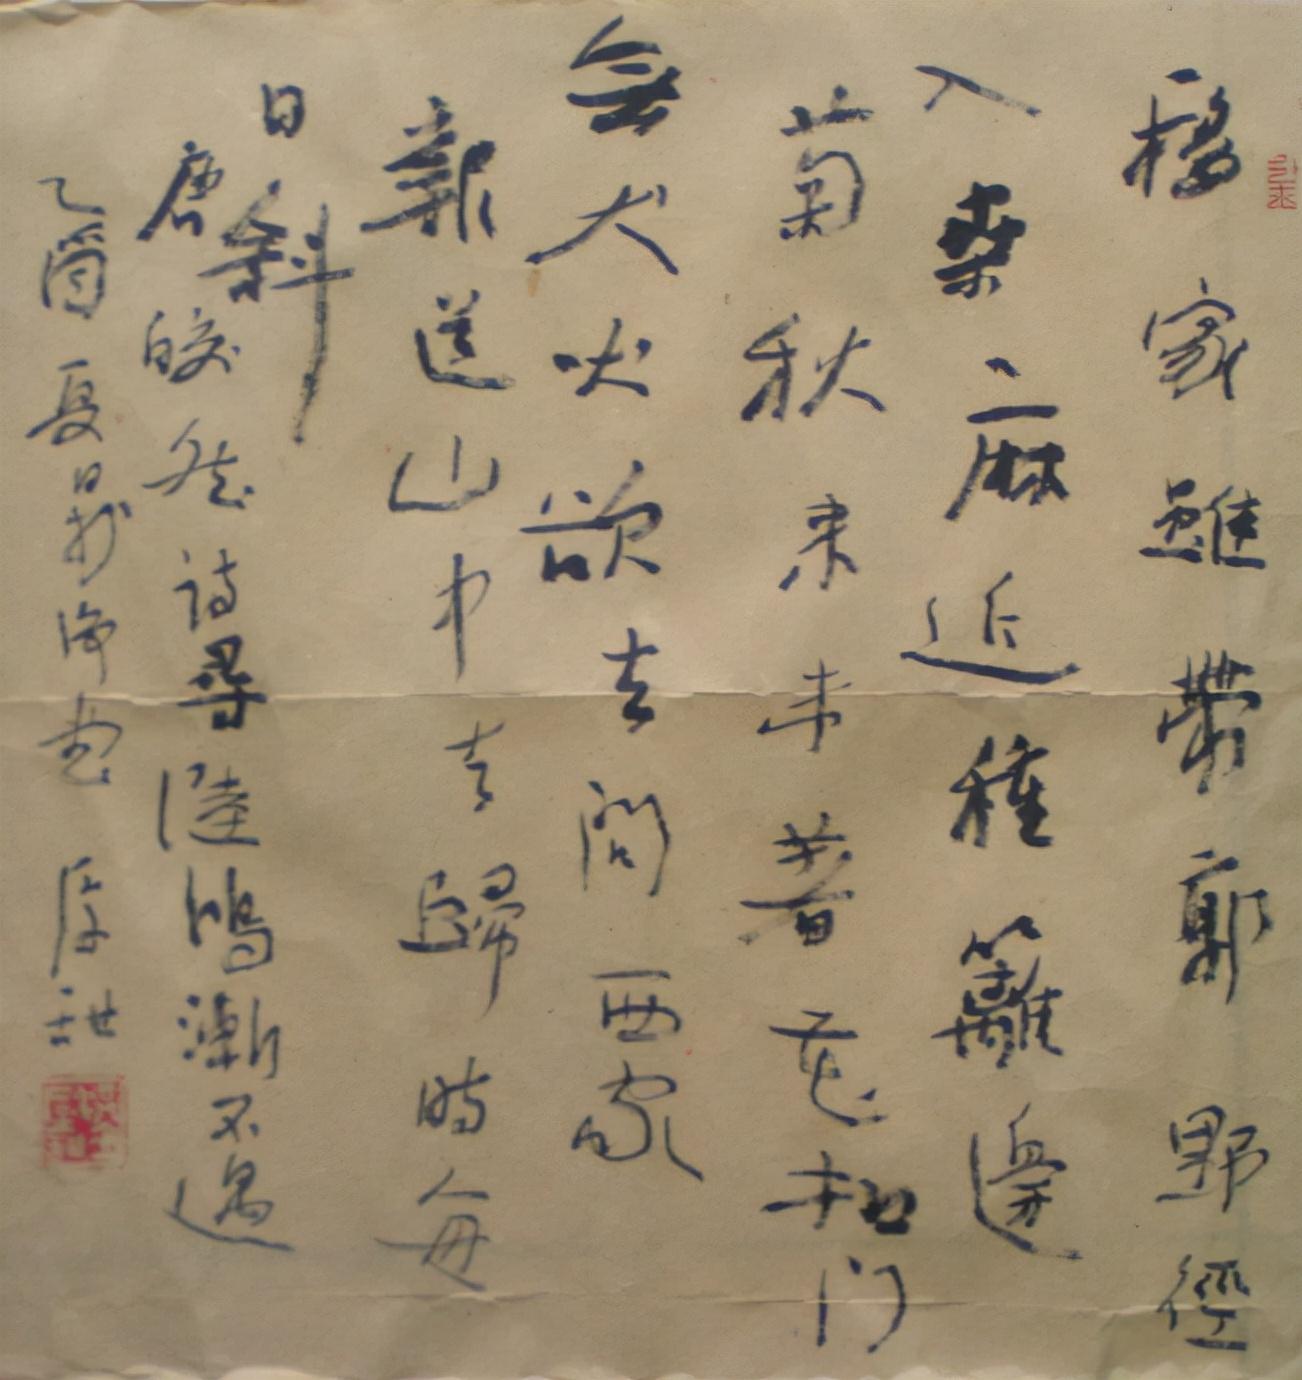 移家雖帶郭野徑
入桑麻近種籬邊
菊秋來未著花扣門
無犬吠欲去問西家
報道山中去歸時每
日斜
唐皎然詩尋陸鴻漸不遇
乙酉夏日於